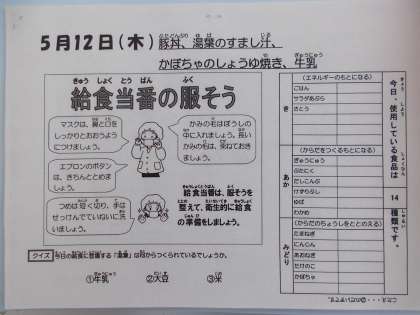 5月12日(木) 豚丼、湯葉のすまし汁、
かぼちゃのしょうゆ焼き、牛乳
きゅうしょくとうばん ふく
給食当番の服そう
マスクは、鼻と口を
しっかりとおおうよう
につけましょう。
かみの毛はぼうしの
中に入れましょう。長い
かみの毛は、束ねておき
ましょう。
エプロンのボタン
は、きちんととめま
しょう。
つめは短く切り、手は
せっけんでていねいに洗
いましょう。
給食当番は、服そうを
整えて、衛生的に給食
の準備をしましょう。
クイズ 今日の給食に登場する「湯葉」は何からつくられているでしょうか。
①牛乳 ②大豆 ③米
今日、使用している食品は
14
種類です。
き
(エネルギーのもとになる)
ごはん
サラダあぶら
さとう
あか
(からだをつくるもとになる)
ぎゅうにゅう
ぶたにく
だしこんぶ
けずりぶし
ゆば
わかめ
みどり
(からだのちょうしをととのえる)
たまねぎ
にんじん
あおねぎ
たけのこ
かぼちゃ